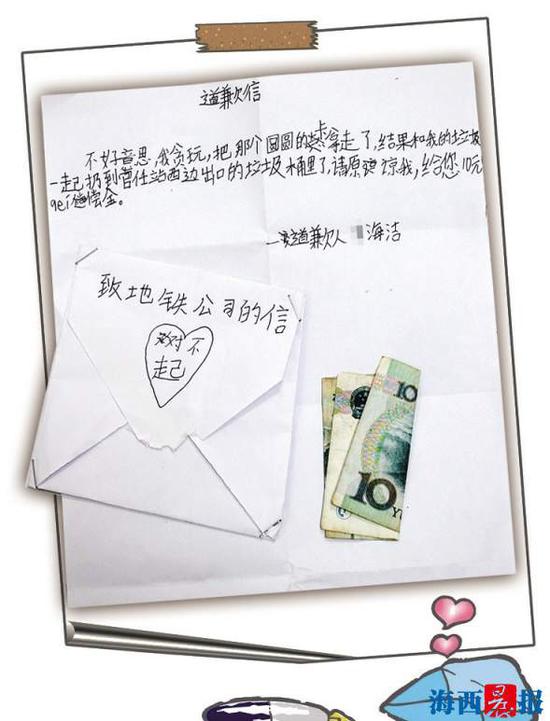 道歉信
不好意思,我贪玩,把那个圆圆的卡拿走了,结果和我的垃圾
一起扔到官任站西边出口的垃圾桶里了,请原谅我,给您10元
pei偿金。
—道歉人 海洁
致地铁公司的信
对不
起
10
10
海西晨报